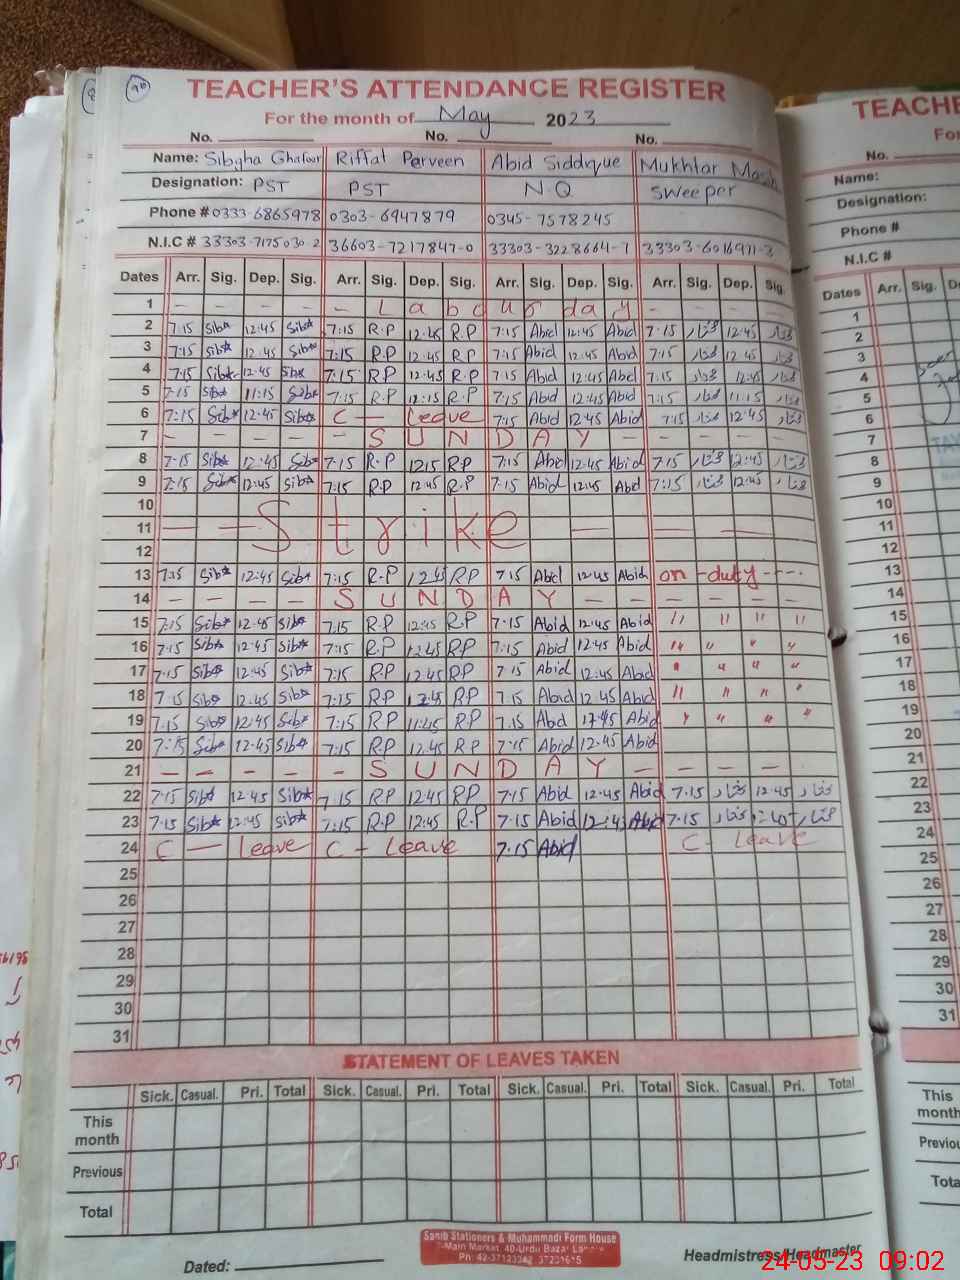 TEACHER'S ATTENDANCE REGISTER
For the month of May 2023
No. No. No.
Name: Sibgha Ghafoor Riffat Parveen Abid Siddique Mukhtar Masih
Designation: PST PST N.Q Sweeper
Phone # 0333-6865978 0303-6947879 0345-7578245
N.I.C # 33303-7175030-2 36603-7217847-0 33303-3228664-7 33303-6016971-3
Dates Arr. Sig. Dep. Sig. Arr. Sig. Dep. Sig. Arr. Sig. Dep. Sig. Arr. Sig. Dep. Sig.
1 - - - - - Labour day - - - -
2 7:15 Sib* 12:45 Sib* 7:15 R.P 12:45 R.P 7:15 Abid 12:45 Abid 7:15 مختار 12:45 مختار
3 7:15 Sib* 12:45 Sib* 7:15 R.P 12:45 R.P 7:15 Abid 12:45 Abid 7:15 مختار 12:45 مختار
4 7:15 Sib* 12:45 Sib* 7:15 R.P 12:45 R.P 7:15 Abid 12:45 Abid 7:15 مختار 12:45 مختار
5 7:15 Sib* 11:15 Sib* 7:15 R.P 12:15 R.P 7:15 Abid 12:45 Abid 7:15 مختار 11:15 مختار
6 7:15 Sib* 12:45 Sib* C - Leave 7:15 Abid 12:45 Abid 7:15 مختار 12:45 مختار
7 - - - - - SUNDAY - - - - -
8 7:15 Sib* 12:45 Sib* 7:15 R.P 12:15 R.P 7:15 Abid 12:45 Abid 7:15 مختار 12:45 مختار
9 7:15 Sib* 12:45 Sib* 7:15 R.P 12:45 R.P 7:15 Abid 12:45 Abid 7:15 مختار 12:45 مختار
10
11 - - Strike - - -
12
13 7:15 Sib* 12:45 Sib* 7:15 R.P 12:45 RP 7:15 Abid 12:45 Abid on - duty - - -
14 - - - - - SUNDAY - - - - -
15 7:15 Sib* 12:45 Sib* 7:15 R.P 12:45 R.P 7:15 Abid 12:45 Abid " " " "
16 7:15 Sib* 12:45 Sib* 7:15 R.P 12:45 RP 7:15 Abid 12:45 Abid " " " "
17 7:15 Sib* 12:45 Sib* 7:15 RP 12:45 RP 7:15 Abid 12:45 Abid " " " "
18 7:15 Sib* 12:45 Sib* 7:15 RP 12:45 RP 7:15 Abid 12:45 Abid " " " "
19 7:15 Sib* 12:45 Sib* 7:15 RP 11:45 RP 7:15 Abid 12:45 Abid " " " "
20 7:15 Sib* 12:45 Sib* 7:15 R.P 12:45 RP 7:15 Abid 12:45 Abid
21 - - - - - SUNDAY - - - - -
22 7:15 Sib* 12:45 Sib* 7:15 RP 12:45 RP 7:15 Abid 12:45 Abid 7:15 مختار 12:45 مختار
23 7:15 Sib* 12:45 Sib* 7:15 R.P 12:45 R.P 7:15 Abid 12:45 Abid 7:15 مختار 12:45 مختار
24 C - Leave C - Leave 7:15 Abid C - Leave
25
26
27
28
29
30
31
STATEMENT OF LEAVES TAKEN
Sick. Casual. Pri. Total Sick. Casual. Pri. Total Sick. Casual. Pri. Total Sick. Casual. Pri. Total
This month
Previous
Total
Dated:
Main Market, 40-Urdu Bazar
Headmistress/Headmaster
24-05-23 09:02
TEACHE
No.
Name:
Designation:
Phone #
N.I.C #
Dates Arr. Sig.
1
2
3
4
5
6
7
8
9
10
11
12
13
14
15
16
17
18
19
20
21
22
23
24
25
26
27
28
29
30
31
Sick.
This month
Previou
Tota